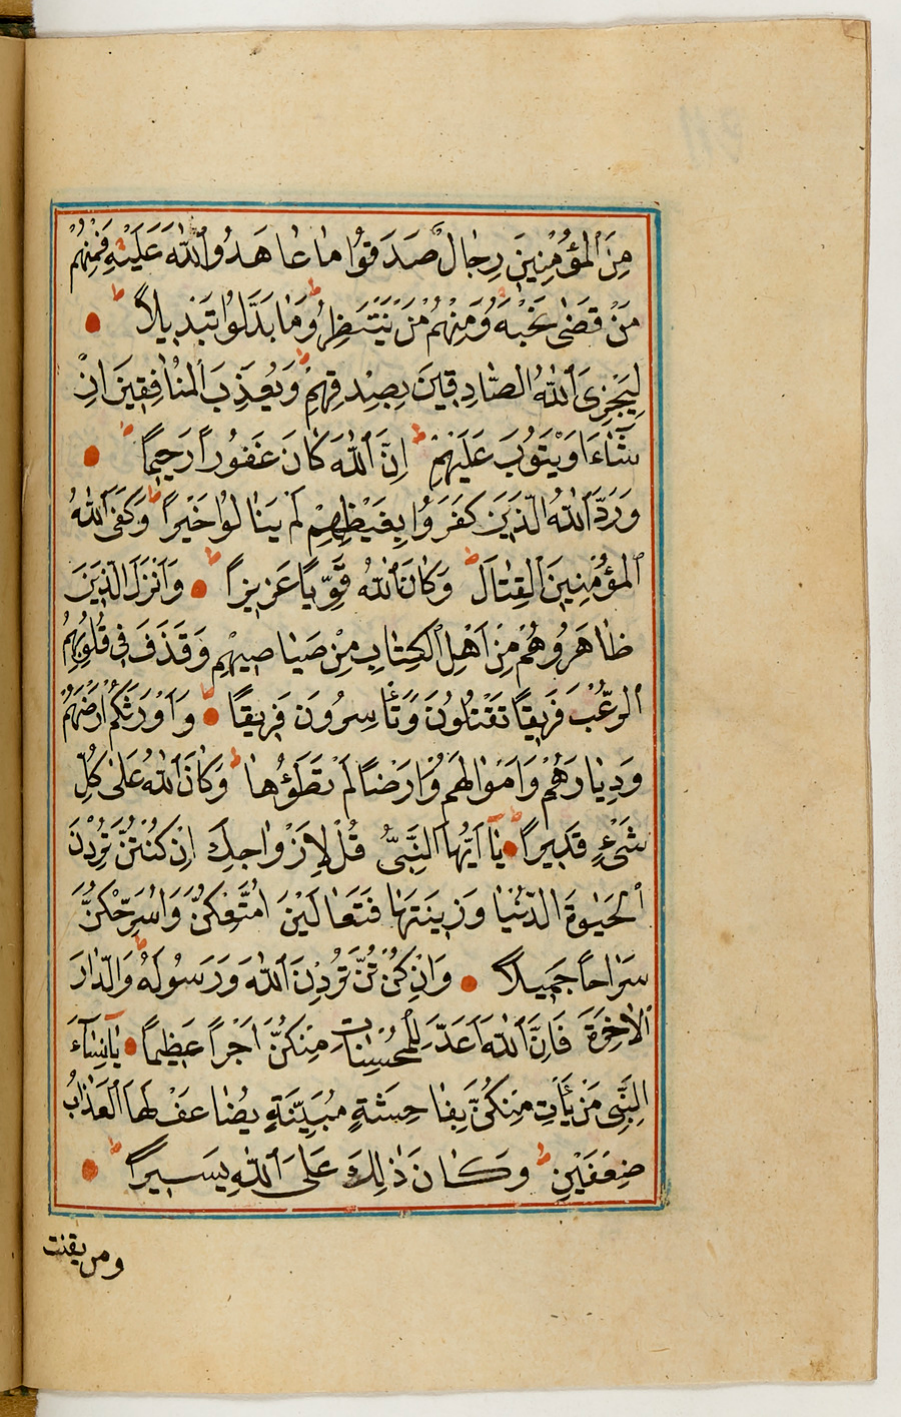 مِنَ الْمُؤْمِنِينَ رِجَالٌ صَدَقُوا مَا عَاهَدُوا اللّٰهَ عَلَيْهِ فَمِنْهُمْ
مَنْ قَضٰى نَحْبَهُ وَمِنْهُمْ مَنْ يَنْتَظِرُ وَمَا بَدَّلُوا تَبْدِيلًا
لِيَجْزِىَ اللّٰهُ الصَّادِقِينَ بِصِدْقِهِمْ وَيُعَذِّبَ الْمُنَافِقِينَ اِنْ
شَآءَ اَوْ يَتُوبَ عَلَيْهِمْ اِنَّ اللّٰهَ كَانَ غَفُورًا رَحِيمًا
وَرَدَّ اللّٰهُ الَّذِينَ كَفَرُوا بِغَيْظِهِمْ لَمْ يَنَالُوا خَيْرًا وَكَفَى اللّٰهُ
الْمُؤْمِنِينَ الْقِتَالَ وَكَانَ اللّٰهُ قَوِيًّا عَزِيزًا وَاَنْزَلَ الَّذِينَ
ظَاهَرُوهُمْ مِنْ اَهْلِ الْكِتَابِ مِنْ صَيَاصِيهِمْ وَقَذَفَ فِى قُلُوبِهِمُ
الرُّعْبَ فَرِيقًا تَقْتُلُونَ وَتَأْسِرُونَ فَرِيقًا وَاَوْرَثَكُمْ اَرْضَهُمْ
وَدِيَارَهُمْ وَاَمْوَالَهُمْ وَاَرْضًا لَمْ تَطَؤُهَا وَكَانَ اللّٰهُ عَلٰى كُلِّ
شَىْءٍ قَدِيرًا يَآ اَيُّهَا النَّبِىُّ قُلْ لِاَزْوَاجِكَ اِنْ كُنْتُنَّ تُرِدْنَ
الْحَيٰوةَ الدُّنْيَا وَزِينَتَهَا فَتَعَالَيْنَ اُمَتِّعْكُنَّ وَاُسَرِّحْكُنَّ
سَرَاحًا جَمِيلًا وَاِنْ كُنْتُنَّ تُرِدْنَ اللّٰهَ وَرَسُولَهُ وَالدَّارَ
الْاٰخِرَةَ فَاِنَّ اللّٰهَ اَعَدَّ لِلْمُحْسِنَاتِ مِنْكُنَّ اَجْرًا عَظِيمًا يَا نِسَآءَ
النَّبِىِّ مَنْ يَأْتِ مِنْكُنَّ بِفَاحِشَةٍ مُبَيِّنَةٍ يُضَاعَفْ لَهَا الْعَذَابُ
ضِعْفَيْنِ وَكَانَ ذٰلِكَ عَلَى اللّٰهِ يَسِيرًا
ومن يقنت